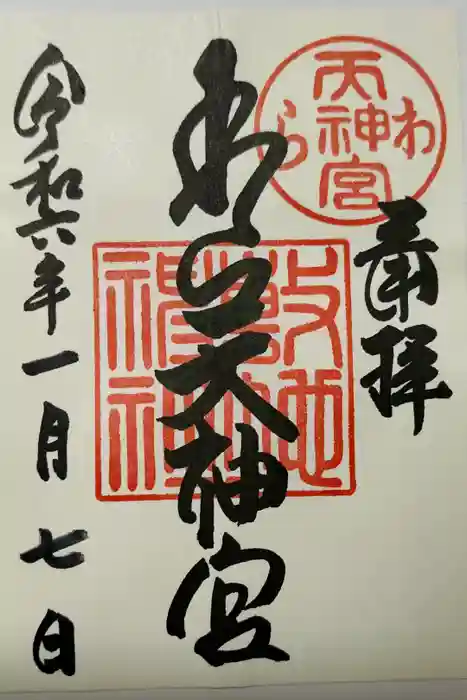 奉拝
わら
天神宮
わら天神宮
令和六年一月七日